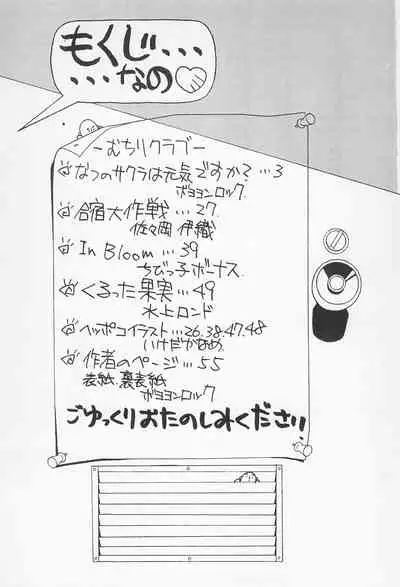 もくじ・・・
・・・なの
-むちりクラブ-
なつのサクラは元気ですか?・・・3
ポヨヨンロック
合宿大作戦・・・27
佐々岡 伊織
In Bloom・・・39
ちびっ子ボーナス
くるった果実・・・49
水上ロンド
ヘッポコイラスト・・・26.38.47.48
いけだかなめ
作者のページ・・・55
表紙、裏表紙
ポヨヨンロック
ごゆっくりおたのしみください